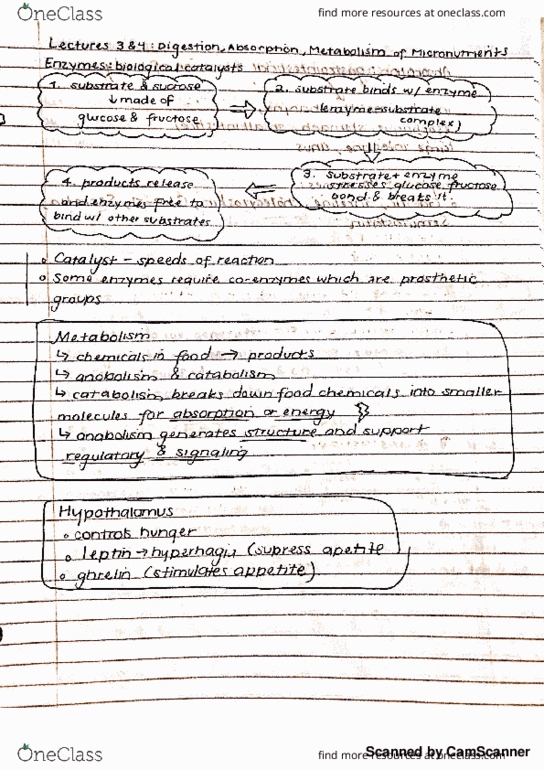 OneClass
find more resources at oneclass.com
Lectures 3 & 4: Digestion, Absorption, Metabolism of Micronutrients
Enzymes: biological catalysts
1. substrate & sucrose
↓ made of
glucose & fructose
2. substrate binds w/ enzyme
(enzyme-substrate
complex)
3. substrate + enzyme
stresses glucose, fructose
bond & breaks it.
4. products release
and enzymes free to
bind w/ other substrates
Catalyst - speeds of reaction
Some enzymes require co-enzymes which are prosthetic
groups
Metabolism
↳ chemicals in food → products
↳ anabolism & catabolism
↳ catabolism breaks down food chemicals into smaller
molecules for absorption or energy
↳ anabolism generates structure and support
regulatory & signaling
Hypothalamus
controls hunger
leptin → hyperhagia (supress apetite
ghrelin (stimulates appetite)
OneClass
find more resources at oneclass.com
Scanned by CamScanner